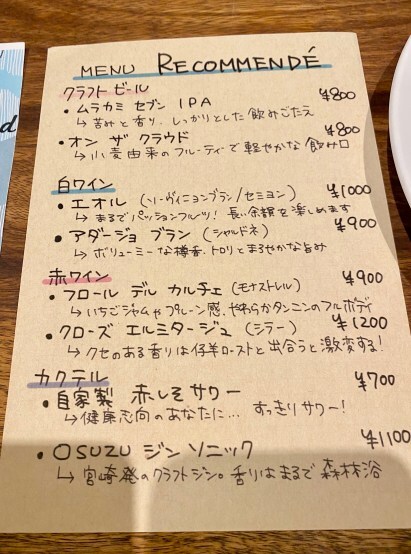 MENU RECOMMENDÉ
クラフトビール
・ムラカミ セブン IPA ¥800
↳ 苦みと香り、しっかりとした飲みごたえ
・オン ザ クラウド ¥800
↳ 小麦由来のフルーティで軽やかな飲み口
白ワイン
・エオル (ソーヴィニヨンブラン/セミヨン) ¥1000
↳ まるでパッションフルーツ! 長い余韻を楽しめます
・アダージョ ブラン (シャルドネ) ¥900
↳ ボリューミーな樽香、トロリとまろやかな旨み
赤ワイン
・フロール デル カルチェ (モナストレル) ¥900
↳ いちごジャムやプルーン感、やわらかタンニンのフルボディ
・クローズ エルミタージュ (シラー) ¥1200
↳ クセのある香りは仔羊ローストと出合うと激変する!
カクテル
・自家製 赤しそサワー ¥700
↳ 健康志向のあなたに… すっきりサワー!
・OSUZU ジン ソニック ¥1100
↳ 宮崎発のクラフトジン。香りはまるで森林浴
d